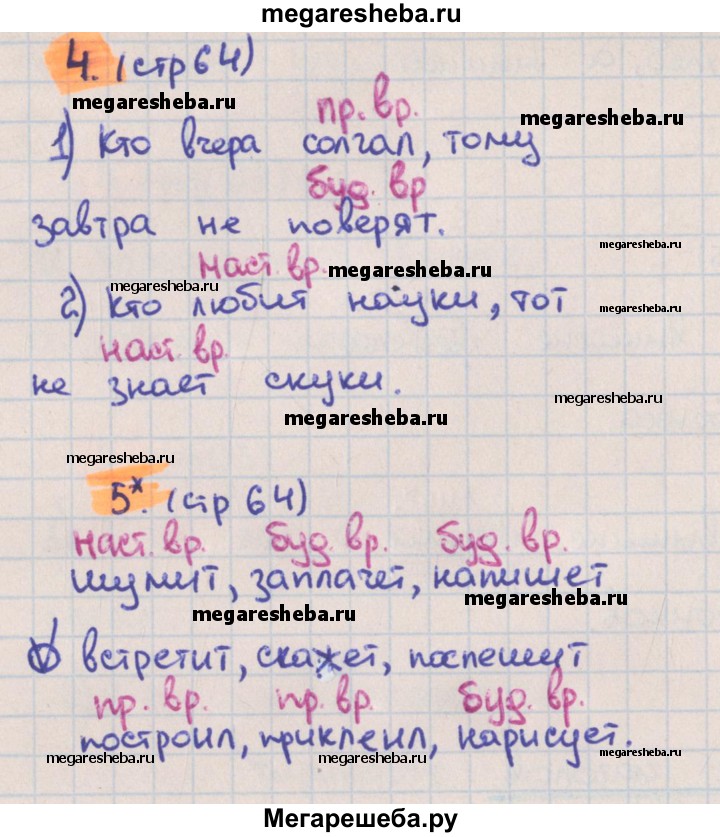 megaresheba.ru
4. (стр 64)
megaresheba.ru
пр. вр.
megaresheba.ru
1) Кто вчера солгал, тому
буд. вр
завтра не поверят.
megaresheba.ru
наст. вр.
megaresheba.ru
megaresheba.ru
2) Кто любит науки, тот
megaresheba.ru
наст. вр.
не знает скуки.
megaresheba.ru
megaresheba.ru
megaresheba.ru
5*. (стр 64)
наст. вр. буд. вр. буд. вр.
шумит, заплачет, напишет
megaresheba.ru
megaresheba.ru
V встретит, скажет, поспешут
пр. вр. пр. вр. буд. вр.
построил, приклеил, нарисует.
megaresheba.ru
megaresheba.ru
megaresheba.ru
Мегарешеба.ру